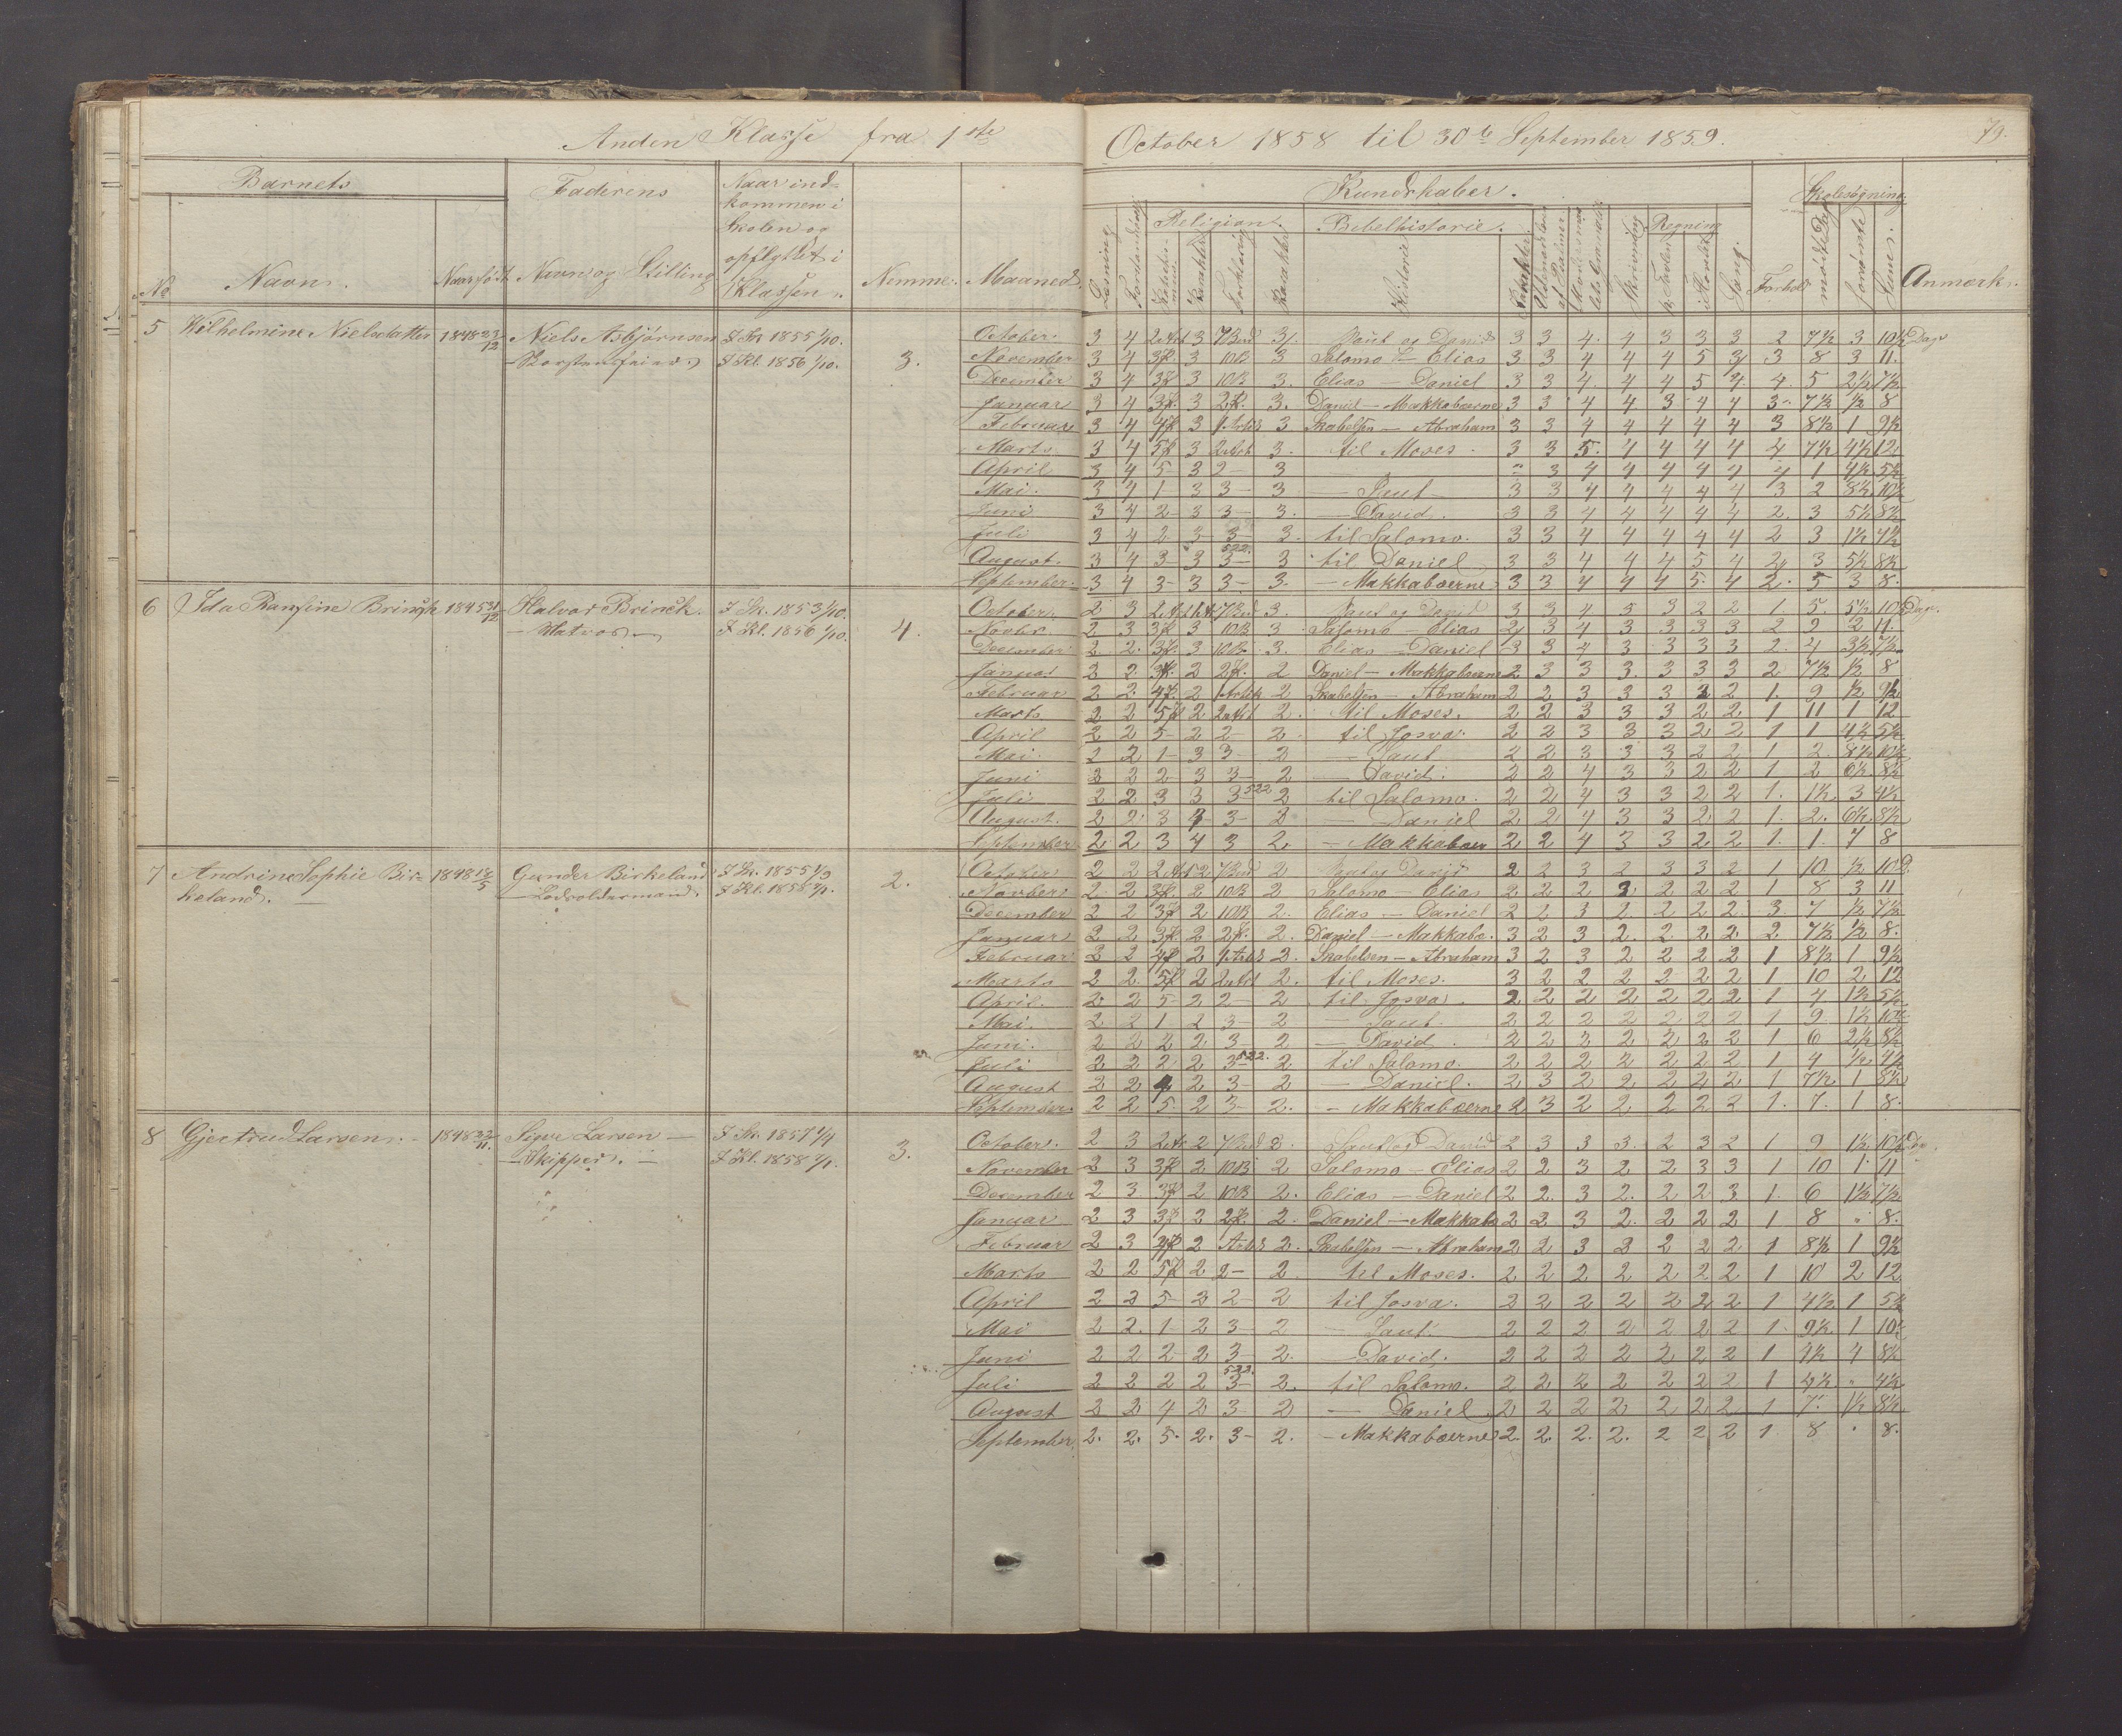 Anden Klasse fra 1ste October 1858 til 30te September 1859. 79.
Barnets Faderens Naar ind-
kommen i
Skolen og
opflyttet i
Klassen.
No Navn. Naar født Navn og Stilling Nemme. Maaned.
Kundskaber. Skolesøgning
Læsning Religion. Bibelhistorie. Regning
Forklaring Karakter Historie Karakter Skrivning paa Tavlen i Hovedet Sang. Forhold mødte Dage forsømte Sum. Anmærkn.
5 Wilhelmine Nielsdatter 1848 23/12 Niels Asbjørnsen I Sk. 1855 1/10.
I Kl. 1856 1/10. 3.
October. 3 4 2 Art 3 7 Bud 3. Saul og David 3 3 4. 4 3 3 3 2 7½ 3 10½ Dage
November 3 4 3 3 10B 3 Salomo – Elias 3 3 4 4 4 5 3 3 8 3 11.
December 3 4 3 3 10B 3. Elias – Daniel 3 3 4. 4 4 5 4. 4. 5 2½ 7½
Januar 3 4 3 3 2 3. Daniel – Makkabæerne 3 3 4 4 3 4 4 3. 7½ ½ 8
Februar 3 4 4 3 1 Artik 3 Skabelsen – Abraham 3 3 4 4 4 4 4 3 8½ 1 9½
Marts 3 4 5 3 2 Art 3. til Moses. 3 3 5. 4 4 4 4 4 7½ 4½ 12
April 3 4 5 – 3 2 – 3 " 3 4 4 4 4 4 4 1 4½ 5½
Mai. 3 4 1 3 3 – 3 – Saul 3 3 4 4 4 4 4 3 2 8½ 10½
Juni 3 4 2 – 3 3 – 3. – David. 3 3 4 4 4 4 4 2. 3 5½ 8½
Juli 3 4 2 3 3 – 3. til Salomo. 3 3 4 4 4 4 4 2 3 1½ 4½
August. 3 4 3 3 3 – 522. 3 til Daniel 3 3 4 4 4 5 4 2 3 5½ 8½
September. 3 4 3 – 3 3 – 3. – Makkabæerne 3 3 4 4 4 5. 4 2. 5 3 8.
6 Ida Ransine Brinck 1845 31/12 Halvor Brinck. I Sk. 1853 1/10.
– Matros – I Kl. 1856 1/10. 4.
October. 2 3 2 Art 7 Bud 3. Saul og David 3 3 4 5 3 2 2 1. 5. 5½ 10½ Dage.
Novbr. 2 3 3 3 10B 3 Salomo – Elias 2 3 4 3 3 3 3 2 9 2 11.
December 2. 2. 3 3 10B. 3. Elias – Daniel 3 3 4 3 3 3 3 2. 4 3½ 7½
Januar 2 2 3 2 2 2 Daniel – Makkabæerne 2 3 3 3. 3 3 3 2 7½ ½ 8
Februar 2 2 4 2 1 Artik 2 Skabelsen – Abraham 2 2 3 3 3 2 2 1. 9 ½ 9½
Marts 2 2 5 2 2 Art 2. til Moses. 2 2 3 3 3 2 2 1 11 1 12
April 2 2 5 – 2 2 – 2. til Josva. 2 2 3 3 3 2 2 1 1 4½ 5½
Mai. 2 2 1 – 3 3 – 2 – Saul 2 2 3 3 3 2 2 1 2. 8½ 10½
Juni 2 2 2 – 3 3 – 2 – David. 2 2 4 3 3 2 2 1 2 6½ 8½
Juli 2 2 3 3 3 – 522 2 til Salomo. 2 2 4 3 3 2 2 1. 1½ 3 4½
August. 2 2 3 4 3 – 2 – Daniel 2 2 4 3 3 2 2 1. 2. 6½ 8½
September 2 2 3 4 3 2. – Makkabæer 2 2 4 3 3 2 2 1. 1. 7 8
7 Andrine Sophie Bir- 1848 18/5 Gunder Birkeland I Sk. 1855 1/3
keland. I Kl. 1858 1/1. 2.
October 2 2 2 Art 2 7 Bud 2 Saul og David 2 2 3 2 3 3 2 1 10 ½ 10 D.
Novber 2 2 3 2 10B 2 Salomo – Elia 2 2 2 3 2 2 2 1 8 3 11
December 2 2 3 2 10B 2. Elias – Daniel 2 2 3 2 2 2 2 3. 7 ½ 7½
Januar 2 2 3 2 2 2. Daniel – Makkabæ. 3 2 3 2. 2 2 2 2 7½ ½ 8.
Februar 2 2 4 2 1 Artik 2. Skabelsen – Abraham 3 2 3 2 2 2 2 1 8½ 1 9½
Marts 2 2. 5 2 2 Art 2. til Moses. 3 2 2 2 2 2 2 1 10 2 12
April. 2 2 5 – 2 2 – 2 til Josva. 2 2 2 2 2 2 2 1 4 1½ 5½
Mai. 2 2 1 2 3 – 2 – Saul. 2 2 2 2 2 2 2 1 9. 1½ 10½
Juni. 2 2 2 2 3 – 2 – David. 2 2 2 2 2 2 2 1 6 2½ 8½
Juli 2 2 2 2 3 – 522. 2 til Salomo. 2 2 2 2 2 2 2 1 4 ½ 4½
August 2 2 4 2 3 – 2 – Daniel. 2 3 2 2 2 2 2 1 7½ 1 8½
September. 2 2 5. 2 3 – 2. – Makkabæerne 2 3 2 2 2 2 2 1. 7. 1 8.
8 Gjertrud Larsen. 1848 22/11. Sivert Larsen – I Sk. 1857 1/4
– Skipper. – I Kl. 1858 1/1. 3.
October. 2 3 2 Art 2 7 Bud 2. Saul og David 2 3 3 3. 2 3 2 1 9 1½ 10½ Da.
November 2 3 3 2 10B 2 Salomo – Elias 2 2 3 2 2 3 3 1 10 1. 11
December 2 3 3 2 10B 2. Elias – Daniel 2 2. 3 2. 2 2 3 1. 6 1½ 7½
Januar 2 3 3 2 2 2. Daniel – Makkabæ 2 2 3 2. 2 2 2 1 8 " 8.
Februar 2 3 4 2 Artik 2. Skabelsen – Abraham 2 2 3 2 2 2 2 1 8½ 1 9½
Marts 2 2 5 2 2 – 2. til Moses. 2 2 2 2 2 2 2 1 10 2 12
April 2 2 5 – 2 2 – 2 til Josva. 2 2 2 2 2 2 2 1 4½ 1 5½
Mai 2 2. 1 – 2 3 – 2 – Saul. 2 2 2 2 2 2 2 1. 9½ 1 10½
Juni 2 2 2 – 2 3 – 2. – David. 2 2 2 2 2 2 2 1 4½ 4 8½
Juli 2 2 2 2 3 – 522. 2. til Salomo. 2 2 2 2 2 2 2 1 4½ " 4½
August 2 2 4 2 3 2 – Daniel 2 2 2 2 2 2 2 1 7. 1½ 8½
September. 2. 2. 5. 2. 3 – 2. – Makkabæerne 2 2. 2. 2. 2 2 2 1 8 " 8.